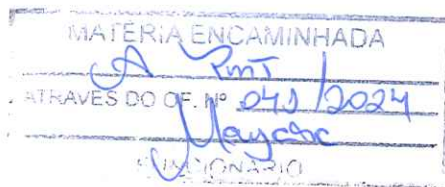 MATÉRIA ENCAMINHADA
A PMT
ATRAVÉS DO OF. Nº 041/2024
FUNCIONÁRIO